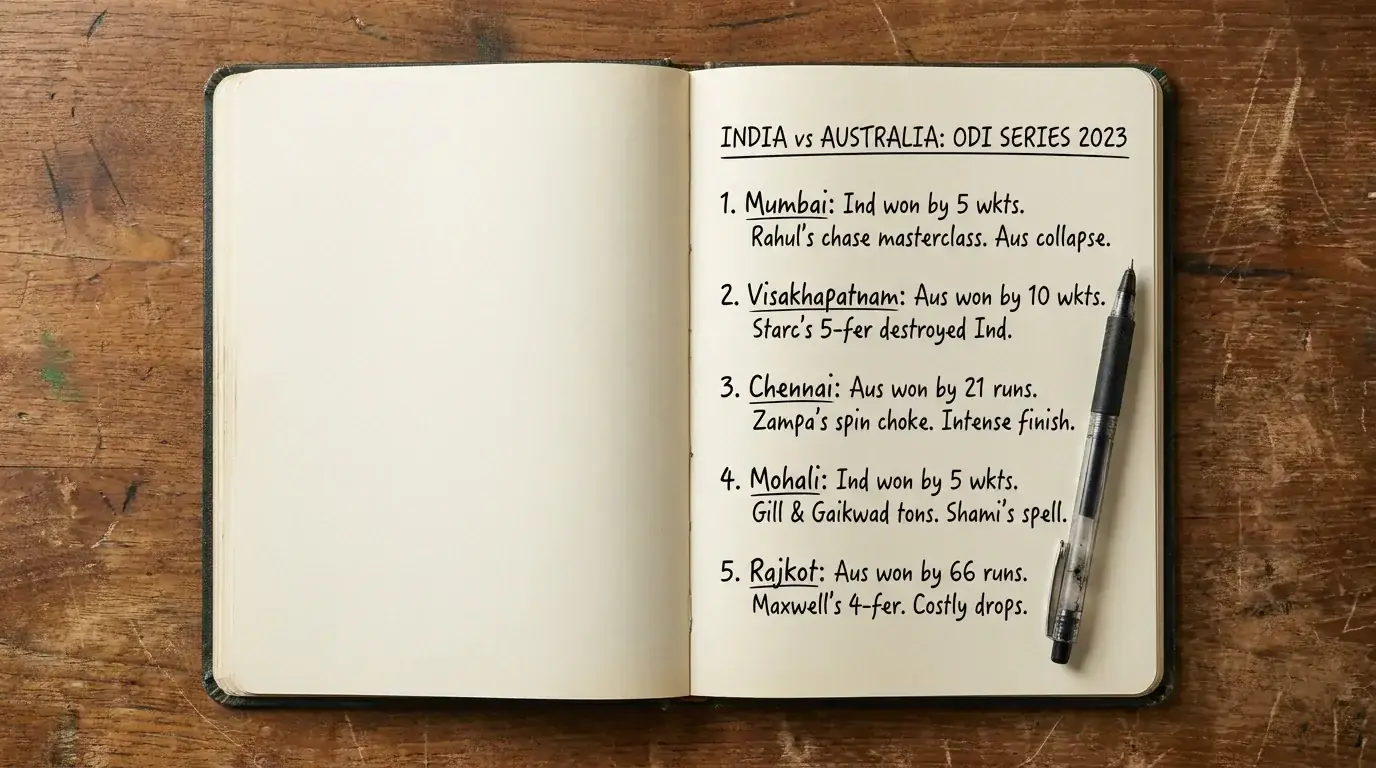 INDIA vs AUSTRALIA: ODI SERIES 2023
1. Mumbai: Ind won by 5 wkts.
Rahul's chase masterclass. Aus collapse.
2. Visakhapatnam: Aus won by 10 wkts.
Starc's 5-fer destroyed Ind.
3. Chennai: Aus won by 21 runs.
Zampa's spin choke. Intense finish.
4. Mohali: Ind won by 5 wkts.
Gill & Gaikwad tons. Shami's spell.
5. Rajkot: Aus won by 66 runs.
Maxwell's 4-fer. Costly drops.